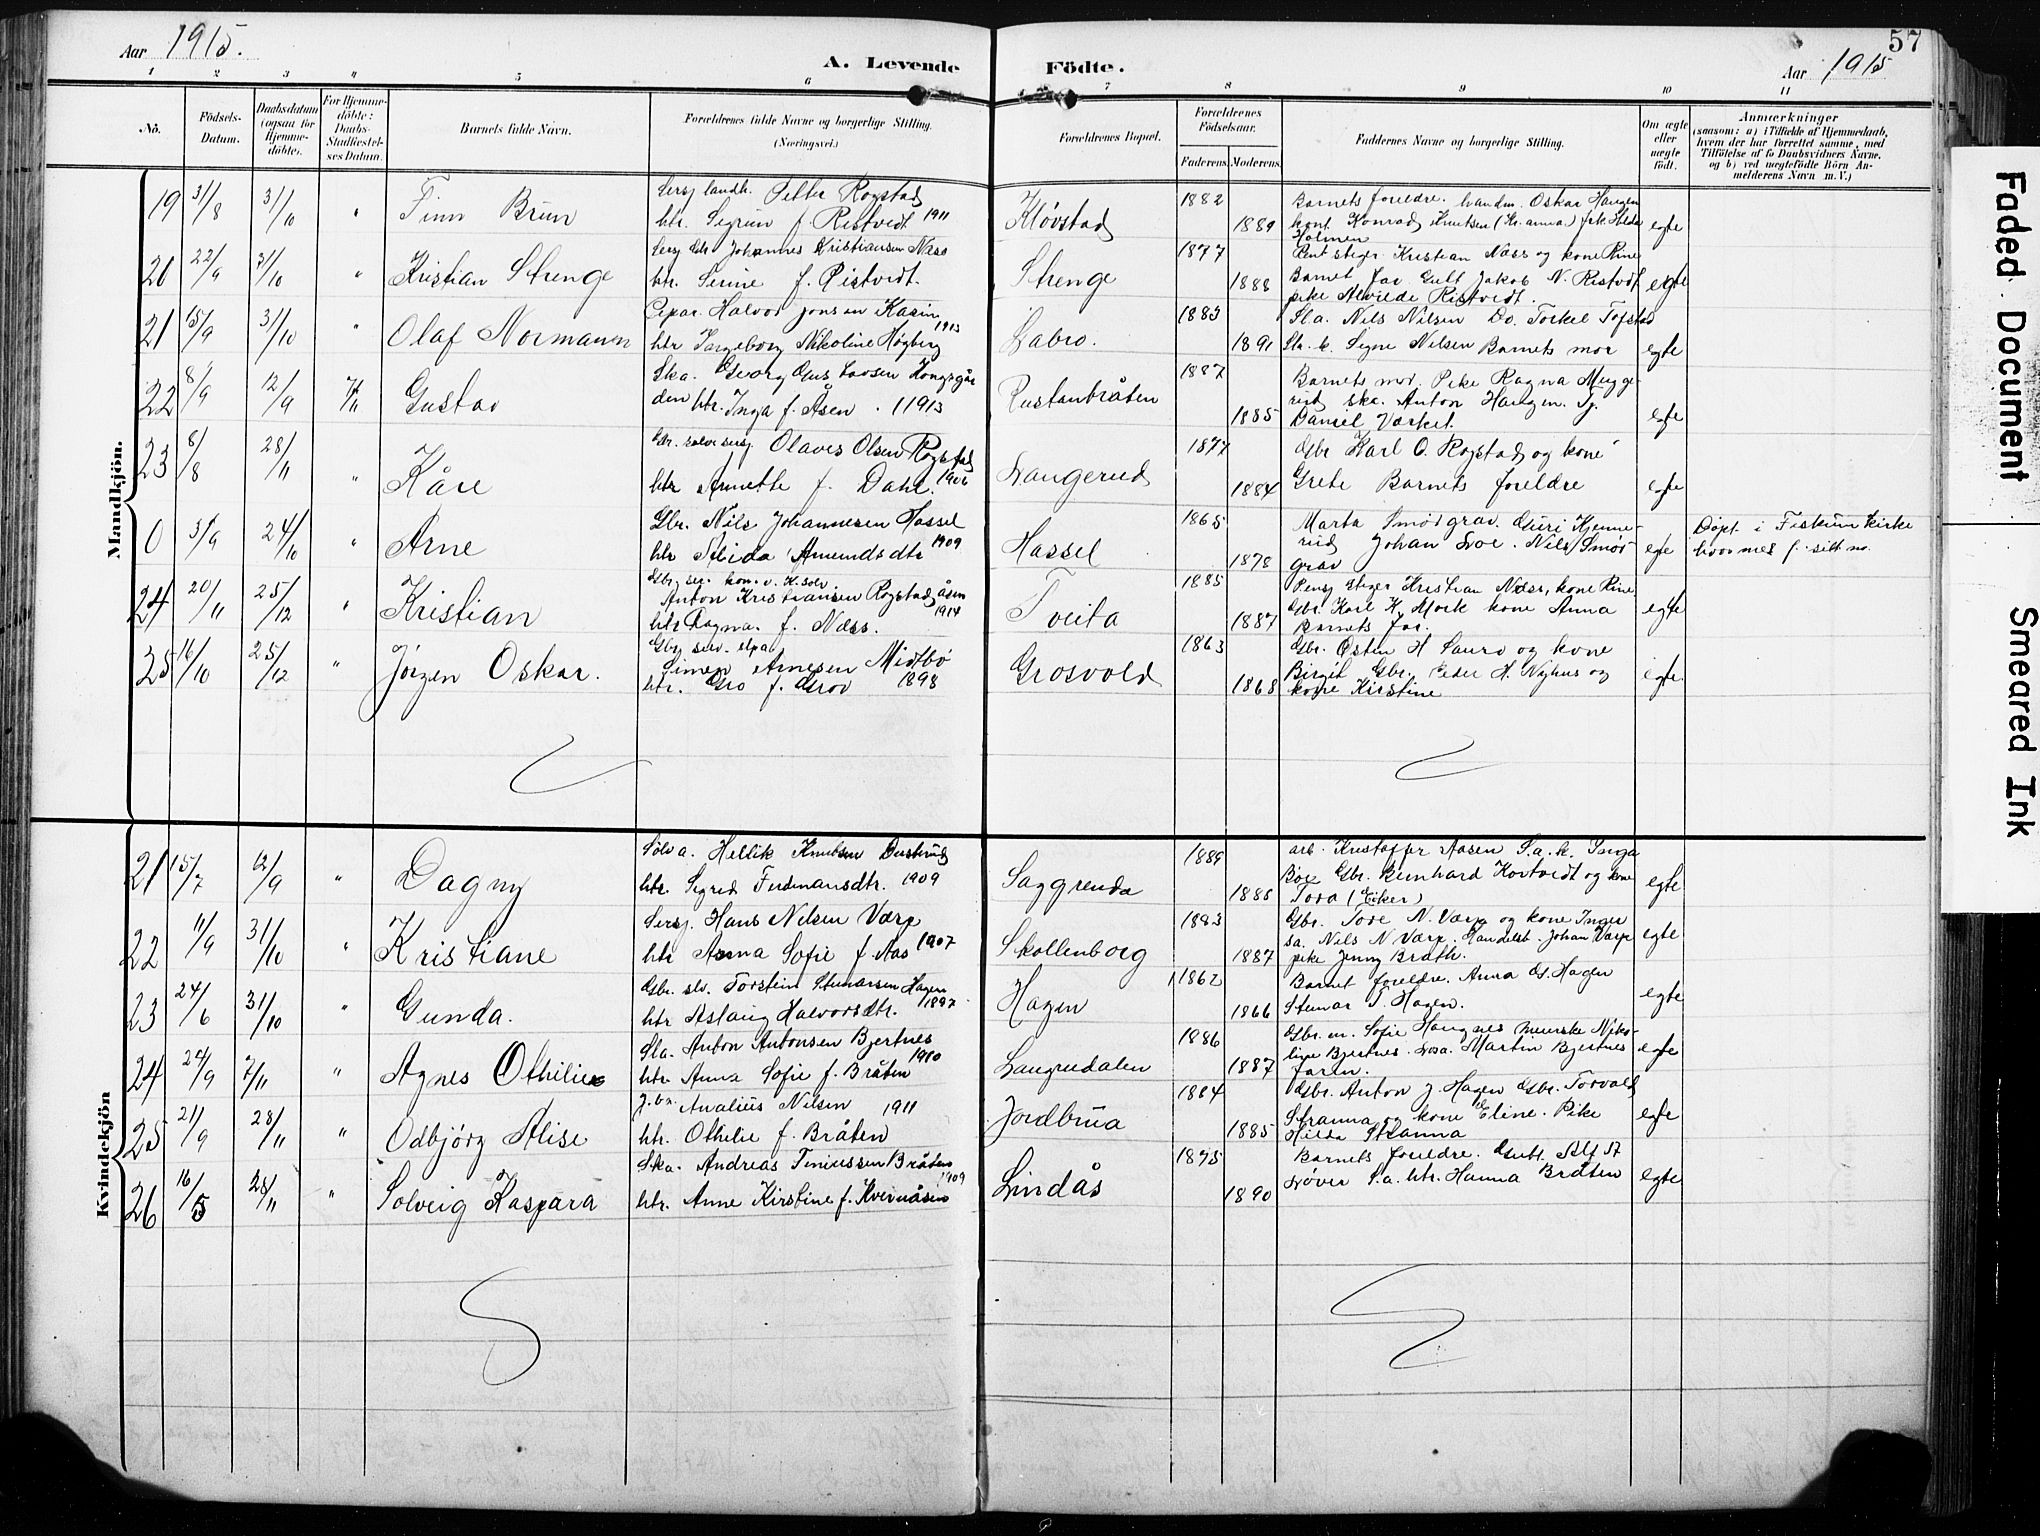 57
Aar 1915.
A. Levende Födte.
Aar 1915
1 2 3 4 5 6 7 8 9 10 11
No.
Födsels-Datum.
Daabsdatum (ogsaa for Hjemme-döbte).
For Hjemme-döbte: Daabs-Stadfæstel-ses Datum.
Barnets fulde Navn.
Forældrenes fulde Navne og borgerlige Stilling. (Næringsvei.)
Forældrenes Bopæl.
Forældrenes Födselsaar.
Faderens. Moderens.
Faddernes Navne og borgerlige Stilling.
Om ægte eller uægte født.
Anmærkninger
(saasom: a) i Tilfælde af Hjemmedaab, hvem der har forrettet samme, med Tilföielse af to Daabsvidners Navne, og b) ved uægtefödte Börn An-melderens Navn m. V.)
Mandkjön.
19 31/8 31/10 " Finn Brun
Sersj landh. Petter Rogstad
htr Sigrun f. Ristvedt 1911
Kløvstad 1882 1889
Barnets foreldre. handm. Oskar Haugen
kont. Konrad Knutsen (Kr.anna) frk. Hilda
Holmen
egte
20 22/9 31/10 " Kristian Strenge
Sersj Gbr Johannes Kristiansen Næss
htr. Serine f. Ristvedt.
Strenge 1877 1888
Pent stiger Kristian Næss og kone Rine
Barnet far Gutt Jakob N. Ristvedt
pike Alvilde Ristvedt.
egte
21 15/9 31/10 " Olaf Normann
Repar. Halvor Jonsen Kasin
htr Ingeborg Nikoline Høgberg 1913
Labro. 1883 1891
Sla. Nils Nilsen Do. Torkel Tofstad
Sla. k. Signe Nilsen Barnets mor
egte
22 8/9 12/9 7/11 Gustav
Ska. Georg Gus Larsen Kongsgår
den htr. Inga f. Åsen. 1913
Rustanbråten 1887 1885
Barnets mor. Pike Ragna Mugge-
rud ska. Anton Haugen. Sj.
Daniel Verket.
egte
23 8/8 28/11 " Kåre
Gbr. sølv sersj Olaves Olsen Rogstad
htr Annette f. Dahl. 1906
Langerud 1877 1884
Gbr Karl O. Rogstad og kone
Grete Barnets foreldre
egte
0 3/9 24/10 " Arne
Gbr. Nils Johannesen Hassel
htr Alida Amundsdtr 1909
Hassel 1865 1878
Marta Smörgrav. Guri Kjenne-
rud Johan Loe. Nils Smör-
grav
egte
Döpt i Fiskum kirke
hvor med f. sitt no.
24 20/11 25/12 " Kristian
Gbr. ser. kon. v. K. sølv
Anton Kristiansen Rogstadåsen
htr Ragna. f. Næss. 1914
Tveita 1885 1887
Pensj stiger Kristian Næss, kone Rine
Gbr. Karl K. Mork kone Anna
Barnets far.
egte
25 16/10 25/12 " Jörgen Oskar.
Gbr. sølv. elpa
Simen Arnesen Midtbö
htr. Gro f. Grov 1898
Grosvold 1863 1868
Gbr. Østen H Sauro og kone
Birgit Gbr. Peder H. Nyhus og
kone Kirstine
egte.
Kvindekjön
21 15/7 12/9 " Dagny
Sölv a. Hellik Knutsen Dustrud
htr. Sigrid Ferdinansdtr. 1909
Saggrenda 1889 1885
arb. Kristoffer Aasen S.a.k. Inga
Boe Gbr. Bernhard Kortvedt og kone
Tora (Eiker)
egte
22 11/9 31/10 " Kristiane
Sersj. Hans Nilsen Værp
htr Anna Sofie f. Aas 1907
Skollenborg 1883 1887
Gbr. Tore N. Værp og kone Inger
sa. Nils N Værp. Handelsb. Johan Værp
pike Jenny Bråth.
egte
23 24/6 31/10 " Gunda.
Gbr. slv. Torstein Stenarsen Hagen
htr Aslaug Halvorsdtr. 1897
Hagen 1862 1866
Barnet foreldre. Anna G. Hagen
Steinar T. Hagen.
egte
24 24/9 7/11 " Agnes Othilie
Sla. Anton Antonsen Bjertnes
htr. Anna Sofie f. Bråten 1910
Laugrudalen 1886 1887
Gbr. m. Sofie Haugnes meierske Niko-
line Bjertnes. Losa. Martin Bjertnes
faren.
egte
25 21/9 28/11 " Odbjörg Alise
J.ba. Analius Nilsen 1911
htr. Othelie f. Bråten
Jordbrua 1884 1885
Gbr. Anton J. Hagen Gbr. Torvald
Stranna og kone Eline. Pike
Hilda Stranna
egte
26 16/5 28/11 " Solveig Kaspara
Ska. Andreas Tiniussen Bråten
htr. Anne Kirstine f. Kvernåsen 1909
Lindås 1875 1890
Barnets foreldre. Gutt. Alf A
Løver S.a. htr. Hanna Bråten
egte
Faded Document
Smeared Ink